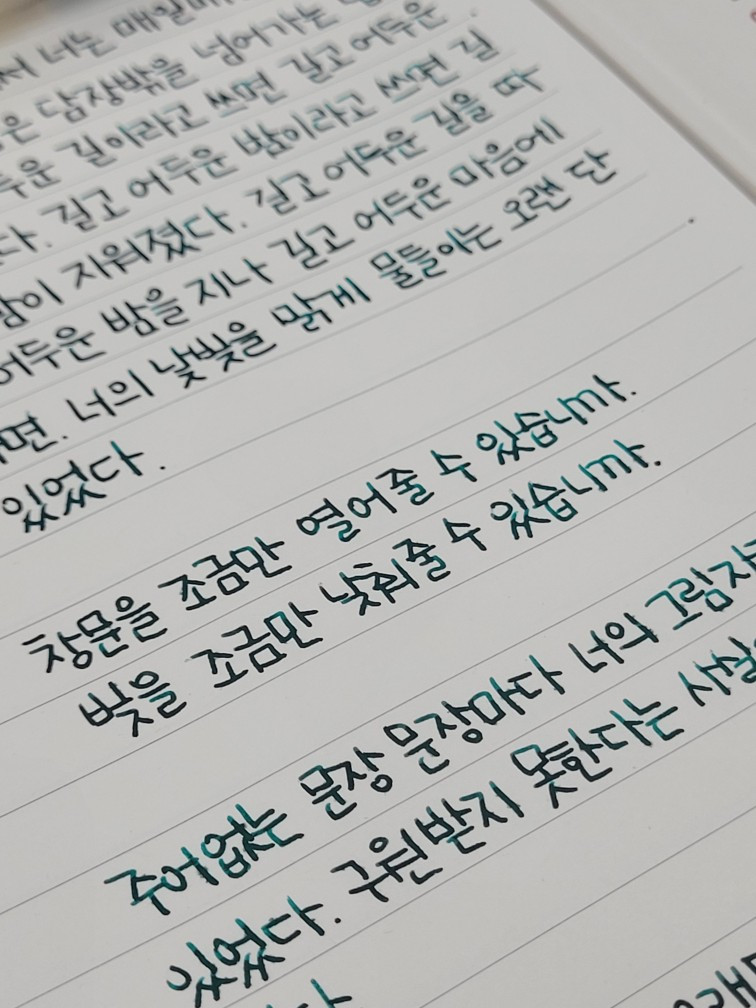 너는 매일매
담장밖을 넘어가는
두운 길이라고 쓰면 길고 어두운
다. 길고 어두운 밤이라고 쓰면 길
밤이 지워졌다. 길고 어두운 길을 따
어두운 밤을 지나 길고 어두운 마음에
면. 너의 낯빛을 맑게 물들이는 오랜 단
있었다.
창문을 조금만 열어줄 수 있습니까.
빛을 조금만 낮춰줄 수 있습니까.
주어없는 문장 문장마다 너의 그림자
있었다. 구원받지 못한다는